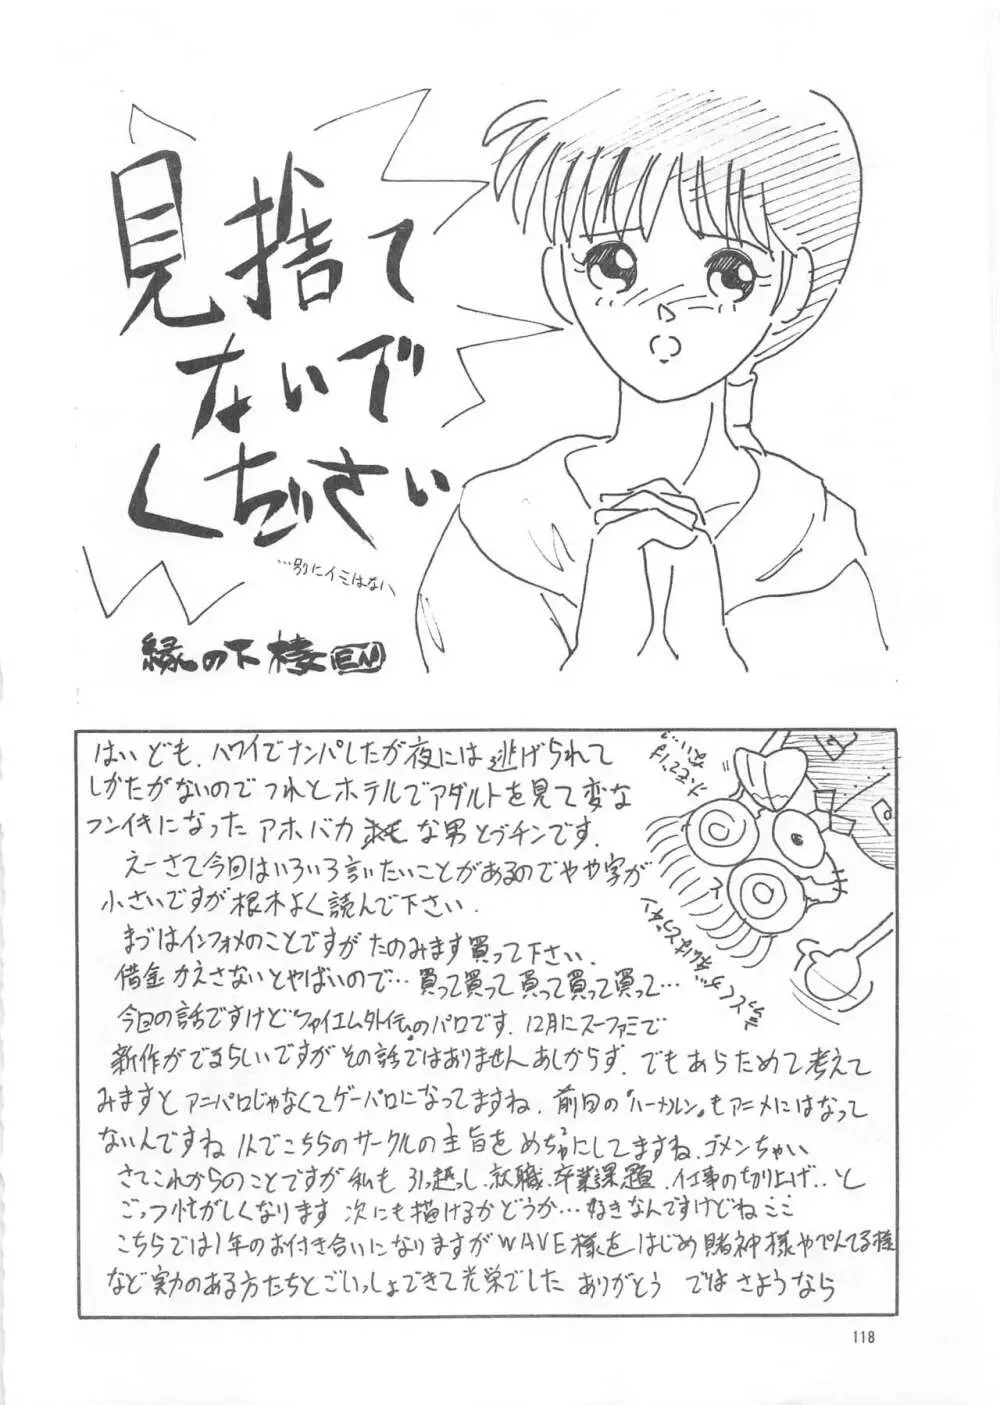 見捨て
ないで
ください
…別にイミはない
縁の下 棲 EN
はい ども、ハワイでナンパしたが夜には逃げられて
しかたがないので つれとホテルでアダルトを見て変な
フンイキになった アホバカ な男 とブチンです.
えーさて今回はいろいろ言いたいことがあるのでやや字が
小さいですが根木よく読んで下さい.
まづはインフォメのことですが たのみます買って下さい.
借金 かえさないとやばいので…買って買って買って買って買って…
今回の話ですけど"ファイエム外伝"のパロです. 12月にスーファミで
新作がでるらしいですが その話ではありませんあしからず. でもあらためて考えて
みますと アニパロじゃなくてゲーパロになってますね. 前回の"ハーメルン"もアニメにはなって
ないんですね 1人でこちらのサークルの主旨をめちゃにしてますね. ゴメンちゃい
さてこれからのことですが 私も 引っ越し. 就職. 卒業課題. 仕事の切り上げ.. と
ごっつ忙がしくなります 次にも描けるかどうか…好きなんですけどねここ
こちらでは1年のお付き合いになりますが WAVE様をはじめ 賭神様やぺんてる様
など実力のある方たちとごいっしょできて光栄でした ありがとう ではさようなら
118